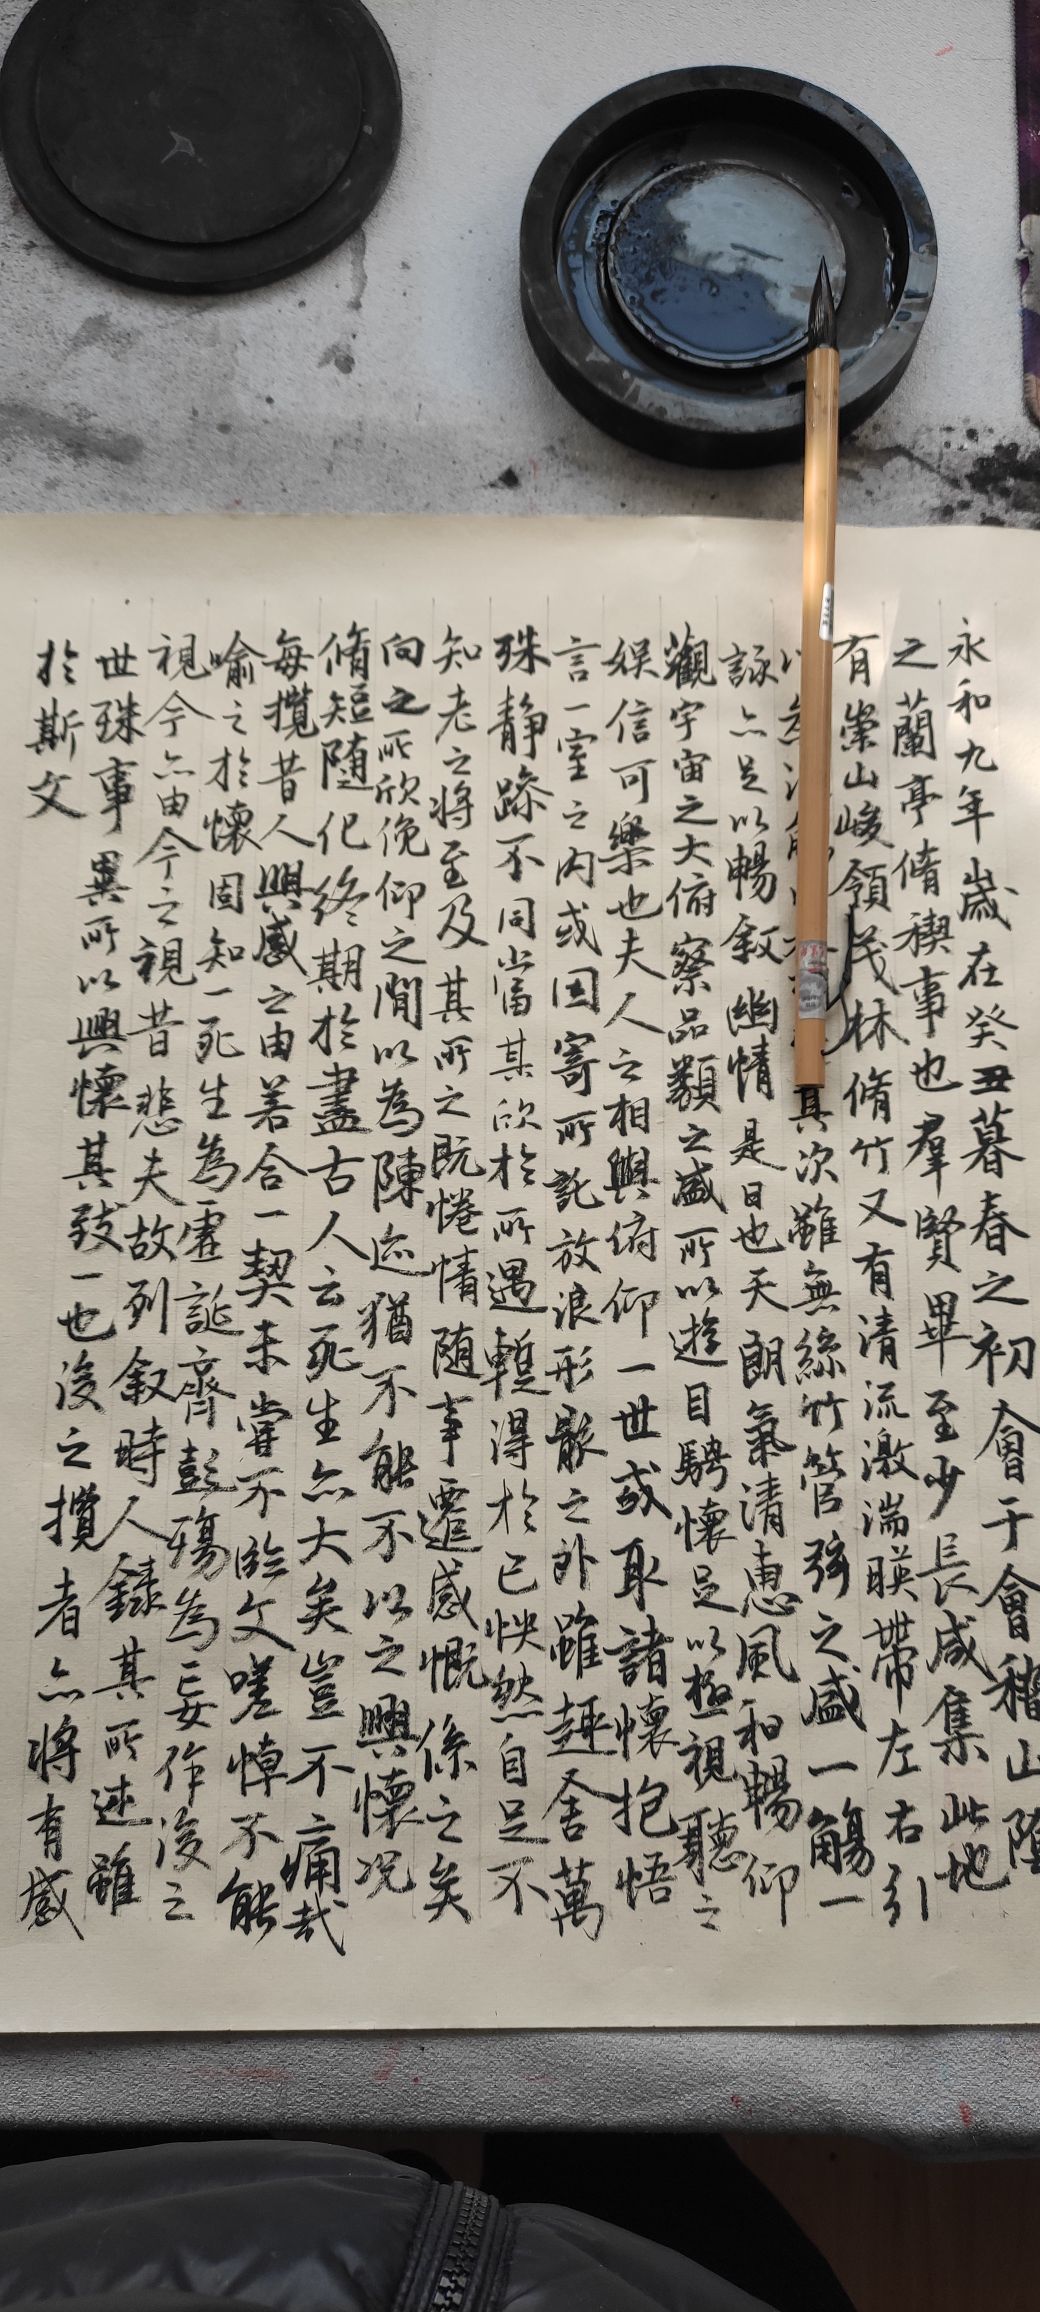 永和九年歲在癸丑暮春之初會于會稽山陰
之蘭亭脩禊事也羣賢畢至少長咸集此地
有崇山峻領茂林脩竹又有清流激湍暎帶左右引
以為流其次雖無絲竹管弦之盛一觴一
詠亦足以暢叙幽情是日也天朗氣清惠風和暢仰
觀宇宙之大俯察品類之盛所以遊目騁懷足以極視聽之
娛信可樂也夫人之相與俯仰一世或取諸懷抱悟
言一室之內或因寄所託放浪形骸之外雖趣舍萬
殊静躁不同當其欣於所遇暫得於己怏然自足不
知老之將至及其所之既惓情随事遷感慨係之矣
向之所欣俛仰之閒以為陳迹猶不能不以之興懷况
脩短随化終期於盡古人云死生亦大矣豈不痛哉
每攬昔人興感之由若合一契未嘗不臨文嗟悼不能
喻之於懷固知一死生為虛誕齊彭殤為妄作後之
視今亦由今之視昔悲夫故列叙時人錄其所述雖
世殊事異所以興懷其致一也後之攬者亦將有感
於斯文